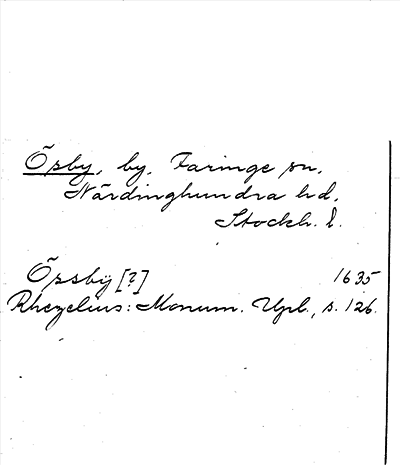 Öpsby, by, Faringe sn.
Närdinghundra hd.
Stockh. l.
Öpsbÿ [?] 1635
Rhezelius: Monum. Upl., s. 126.